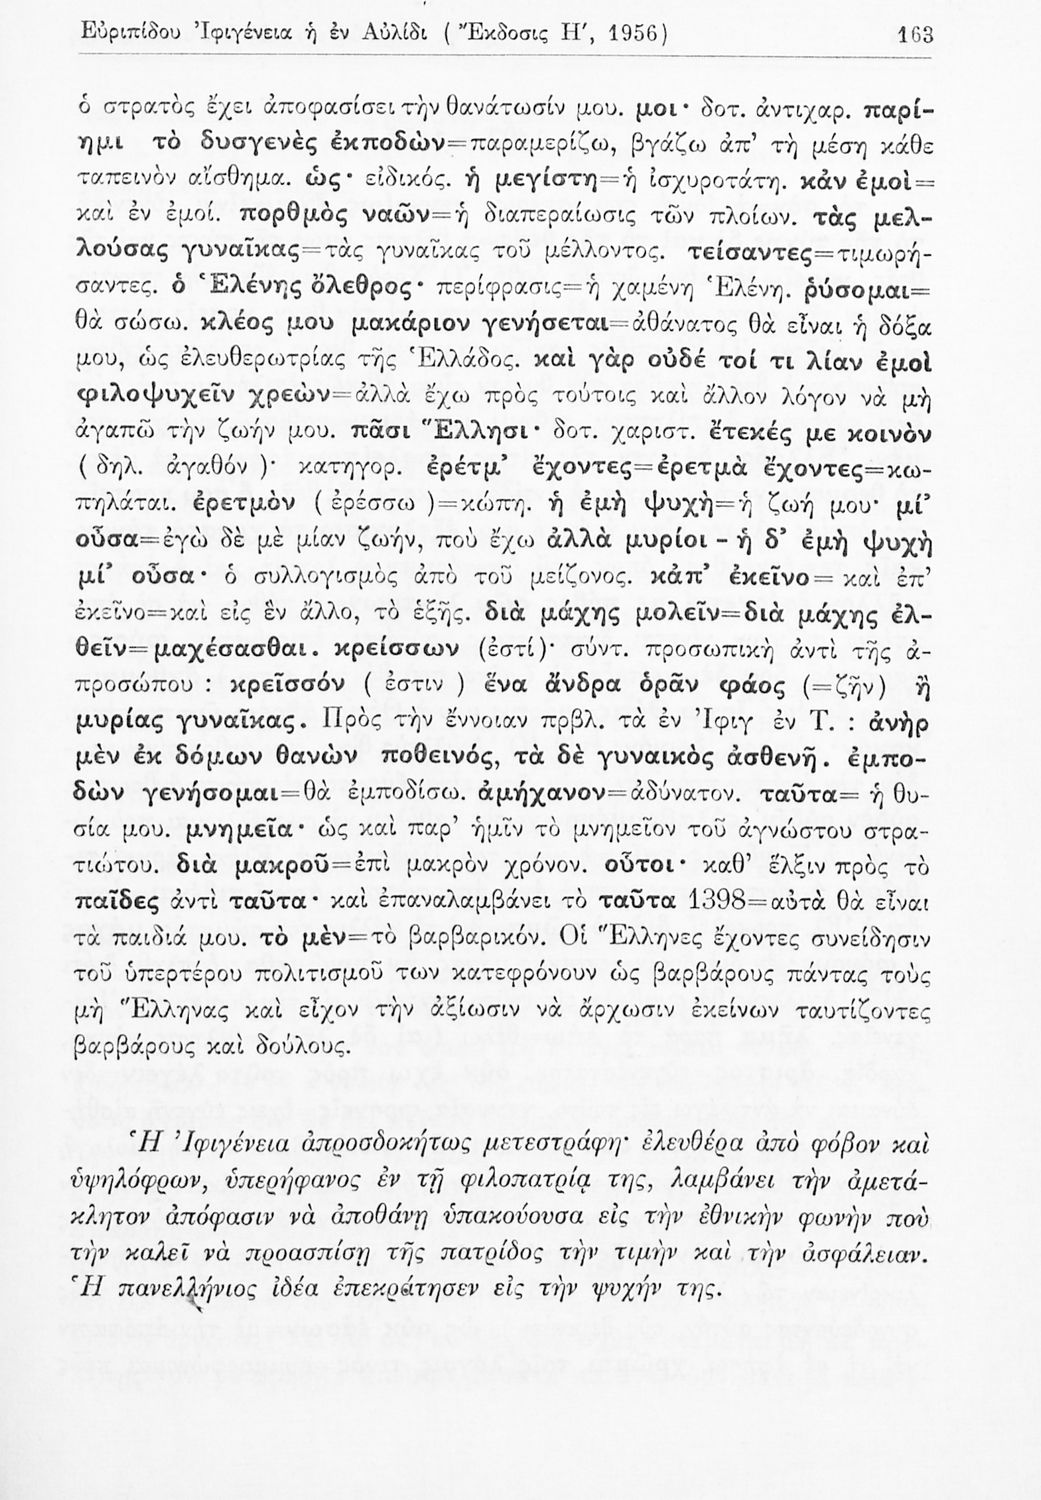 Εὐριπίδου Ἰφιγένεια ἡ ἐν Αὐλίδι ( Ἔκδοσις Η′, 1956) 163
ὁ στρατὸς ἔχει ἀποφασίσει τὴν θανάτωσίν μου. μοι· δοτ. ἀντιχαρ. παρί-
ημι τὸ δυσγενὲς ἐκποδὼν=παραμερίζω, βγάζω ἀπ’ τὴ μέση κάθε
ταπεινὸν αἴσθημα. ὡς· εἰδικός. ἡ μεγίστη=ἡ ἰσχυροτάτη. κἀν ἐμοὶ=
καὶ ἐν ἐμοί. πορθμὸς ναῶν=ἡ διαπεραίωσις τῶν πλοίων. τὰς μελ-
λούσας γυναῖκας=τὰς γυναῖκας τοῦ μέλλοντος. τείσαντες=τιμωρή-
σαντες. ὁ Ἑλένης ὄλεθρος· περίφρασις=ἡ χαμένη Ἑλένη. ῥύσομαι=
θὰ σώσω. κλέος μου μακάριον γενήσεται=ἀθάνατος θὰ εἶναι ἡ δόξα
μου, ὡς ἐλευθερωτρίας τῆς Ἑλλάδος. καὶ γὰρ οὐδέ τοί τι λίαν ἐμοὶ
φιλοψυχεῖν χρεὼν=ἀλλὰ ἔχω πρὸς τούτοις καὶ ἄλλον λόγον νὰ μὴ
ἀγαπῶ τὴν ζωήν μου. πᾶσι Ἕλλησι· δοτ. χαριστ. ἔτεκές με κοινὸν
( δηλ. ἀγαθόν )· κατηγορ. ἐρέτμ’ ἔχοντες=ἐρετμὰ ἔχοντες=κω-
πηλάται. ἐρετμὸν ( ἐρέσσω )=κώπη. ἡ ἐμὴ ψυχὴ=ἡ ζωή μου· μί’
οὖσα=ἐγὼ δὲ μὲ μίαν ζωήν, ποὺ ἔχω ἀλλὰ μυρίοι - ἡ δ’ ἐμὴ ψυχὴ
μί’ οὖσα· ὁ συλλογισμὸς ἀπὸ τοῦ μείζονος. κἀπ’ ἐκεῖνο= καὶ ἐπ’
ἐκεῖνο=καὶ εἰς ἓν ἄλλο, τὸ ἑξῆς. διὰ μάχης μολεῖν=διὰ μάχης ἐλ-
θεῖν=μαχέσασθαι. κρείσσων (ἐστί)· σύντ. προσωπικὴ ἀντὶ τῆς ἀ-
προσώπου : κρεῖσσόν ( ἐστιν ) ἕνα ἄνδρα ὁρᾶν φάος (=ζῆν) ἢ
μυρίας γυναῖκας. Πρὸς τὴν ἔννοιαν πρβλ. τὰ ἐν Ἰφιγ ἐν Τ. : ἀνὴρ
μὲν ἐκ δόμων θανὼν ποθεινός, τὰ δὲ γυναικὸς ἀσθενῆ. ἐμπο-
δὼν γενήσομαι=θὰ ἐμποδίσω. ἀμήχανον=ἀδύνατον. ταῦτα= ἡ θυ-
σία μου. μνημεῖα· ὡς καὶ παρ’ ἡμῖν τὸ μνημεῖον τοῦ ἀγνώστου στρα-
τιώτου. διὰ μακροῦ=ἐπὶ μακρὸν χρόνον. οὗτοι· καθ’ ἕλξιν πρὸς τὸ
παῖδες ἀντὶ ταῦτα· καὶ ἐπαναλαμβάνει τὸ ταῦτα 1398=αὐτὰ θὰ εἶναι
τὰ παιδιά μου. τὸ μὲν=τὸ βαρβαρικόν. Οἱ Ἕλληνες ἔχοντες συνείδησιν
τοῦ ὑπερτέρου πολιτισμοῦ των κατεφρόνουν ὡς βαρβάρους πάντας τοὺς
μὴ Ἕλληνας καὶ εἶχον τὴν ἀξίωσιν νὰ ἄρχωσιν ἐκείνων ταυτίζοντες
βαρβάρους καὶ δούλους.
Ἡ Ἰφιγένεια ἀπροσδοκήτως μετεστράφη· ἐλευθέρα ἀπὸ φόβον καὶ
ὑψηλόφρων, ὑπερήφανος ἐν τῇ φιλοπατρίᾳ της, λαμβάνει τὴν ἀμετά-
κλητον ἀπόφασιν νὰ ἀποθάνῃ ὑπακούουσα εἰς τὴν ἐθνικὴν φωνὴν ποὺ
τὴν καλεῖ νὰ προασπίσῃ τῆς πατρίδος τὴν τιμὴν καὶ τὴν ἀσφάλειαν.
Ἡ πανελλήνιος ἰδέα ἐπεκράτησεν εἰς τὴν ψυχήν της.